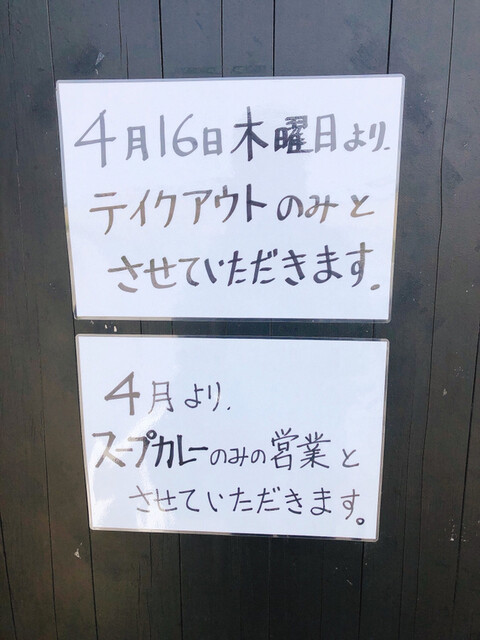 4月16日木曜日より、
テイクアウトのみと
させていただきます。
4月より、
スープカレーのみの営業と
させていただきます。